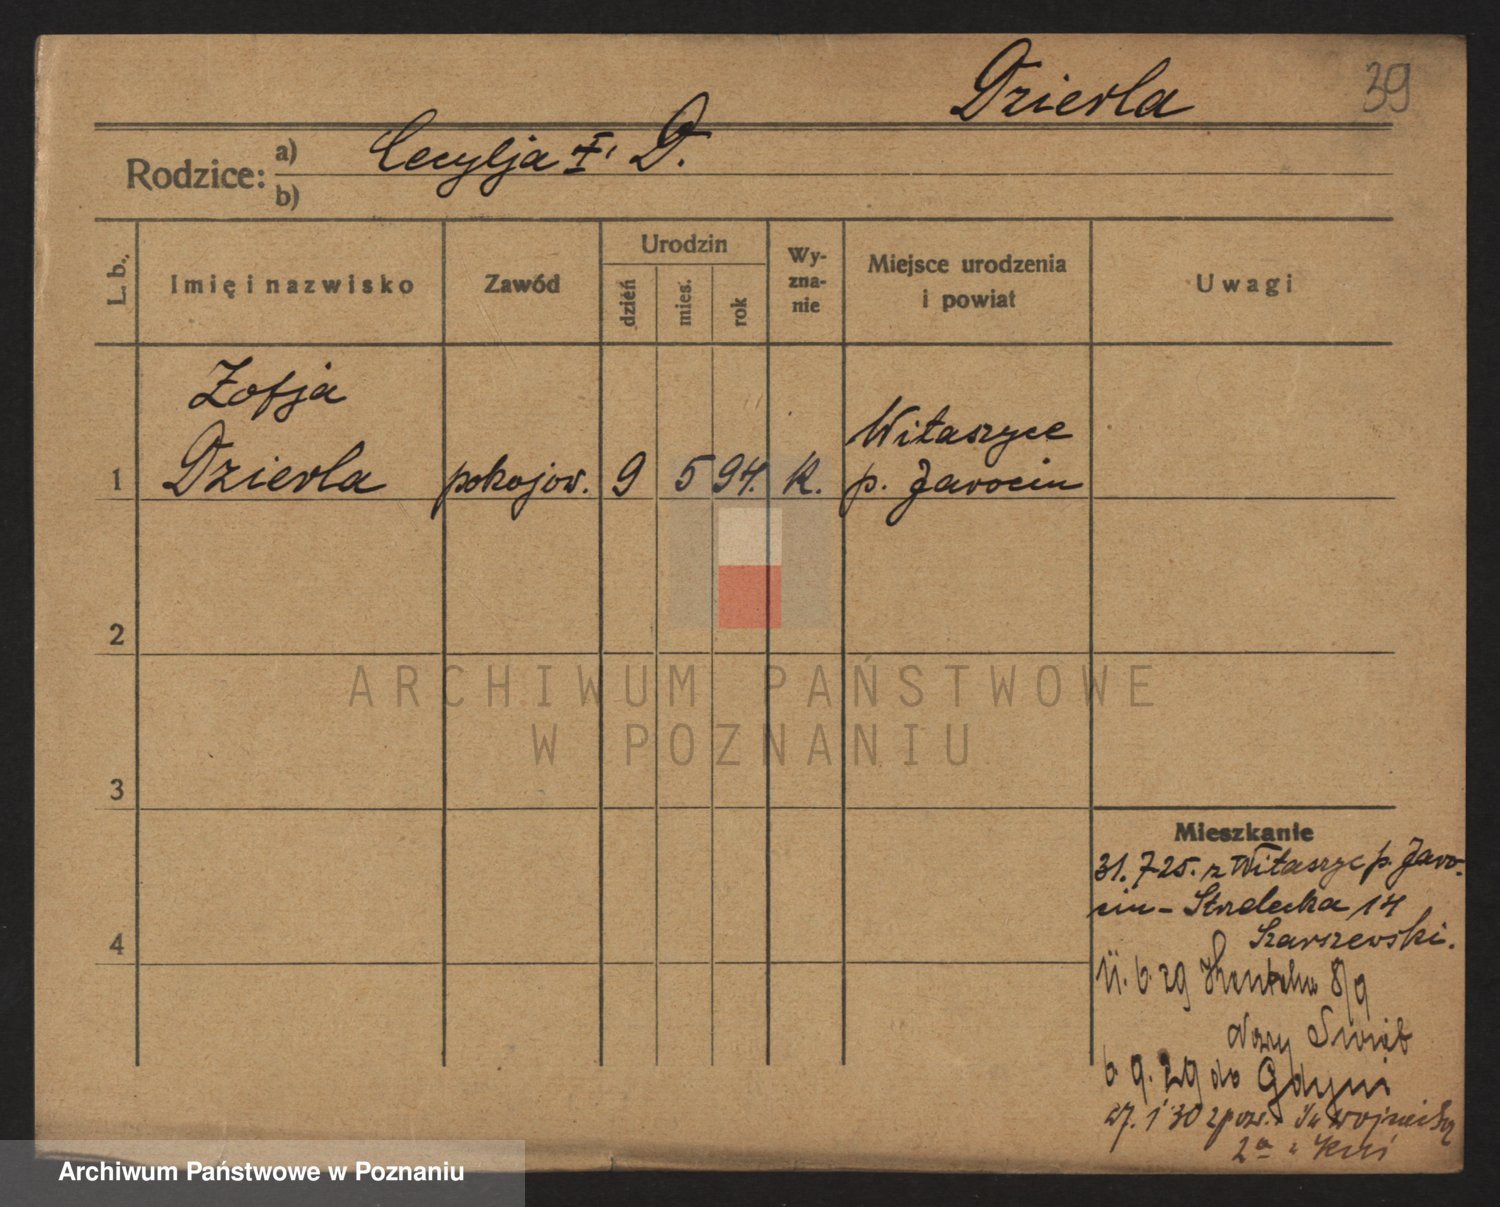 Dzierla
39
Rodzice:
a) Cecylja I. D.
b)
L. b.
Imię i nazwisko
Zawód
Urodzin
dzień
mies.
rok
Wy-
zna-
nie
Miejsce urodzenia
i powiat
Uwagi
Zofja
Witaszyce
1 Dzierla pokojow. 9 5 94. k. p. Jarocin
2
3
4
Mieszkanie
31. 7 25. z Witaszyc p. Jaro-
cin - Strzelecka 14
Szarszewski.
6 29 8/9
6 9. 29 do Gdyni
27. 1 30
2a
ARCHIWUM PAŃSTWOWE
W POZNANIU
Archiwum Państwowe w Poznaniu